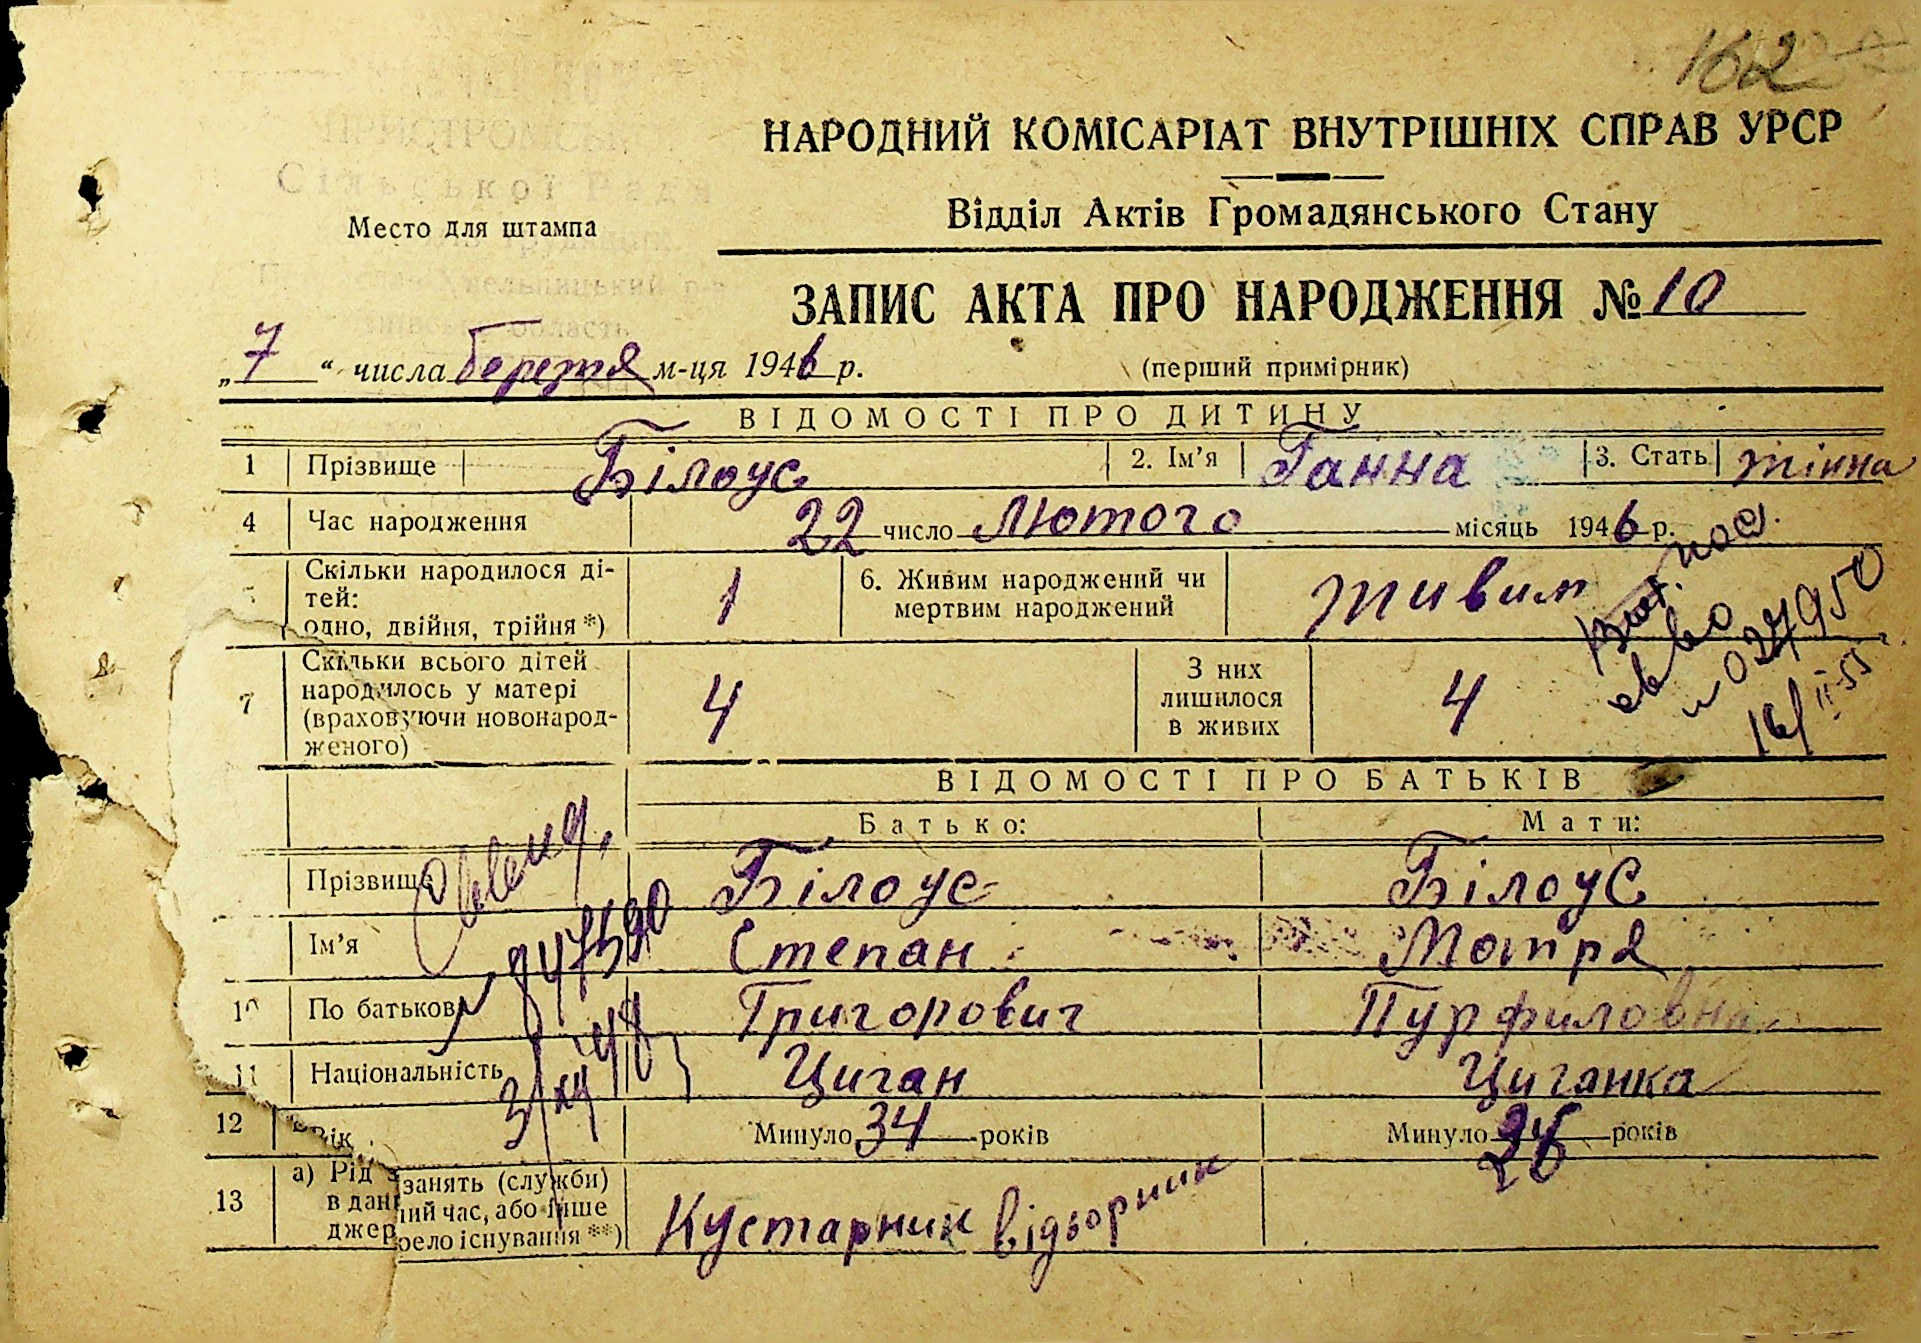 162
НАРОДНИЙ КОМІСАРІАТ ВНУТРІШНІХ СПРАВ УРСР
Сільської Ради
Відділ Актів Громадянського Стану
Место для штампа
ЗАПИС АКТА ПРО НАРОДЖЕННЯ № 10
„7“ числа березня м-ця 1946 р. (перший примірник)
ВІДОМОСТІ ПРО ДИТИНУ
1 Прізвище Білоус 2. Ім'я Ганна 3. Стать жінна
4 Час народження 22 число Лютого місяць 1946 р.
Скільки народилося ді-
тей:
одно, двійня, трійня*) 1 6. Живим народжений чи
мертвим народжений живим
7 Скільки всього дітей
народилось у матері
(враховуючи новонарод-
женого) 4 З них
лишилося
в живих 4
№ 027950
16/II-55
ВІДОМОСТІ ПРО БАТЬКІВ
Батько: Мати:
Прізвище Білоус Білоус
Ім'я Степан Мотря
10 По батькові Григорович Пурфиловна
11 Національність Циган Циганка
12 Вік Минуло 34 років Минуло 26 років
13 а) Рід занять (служби)
в даний час, або інше
джерело існування**) Кустарник відворник